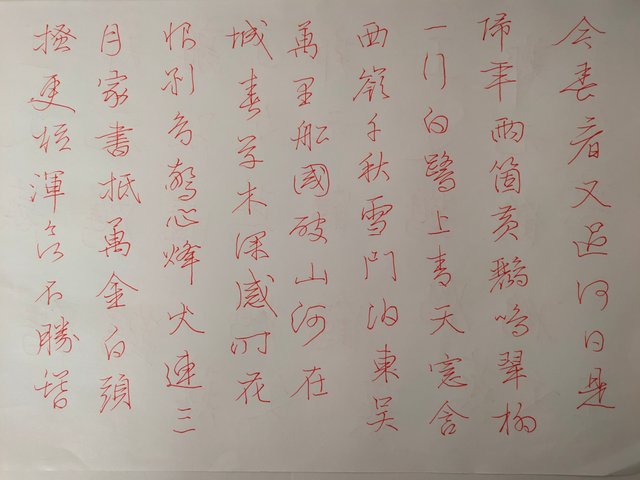 今春看又過何日是
歸年兩箇黃鸝鳴翠柳
一行白鷺上青天窓含
西嶺千秋雪門泊東吴
萬里船國破山河在
城春草木深感時花
恨别鸟驚心烽火連三
月家書抵萬金白頭
搔更短渾欲不勝簪